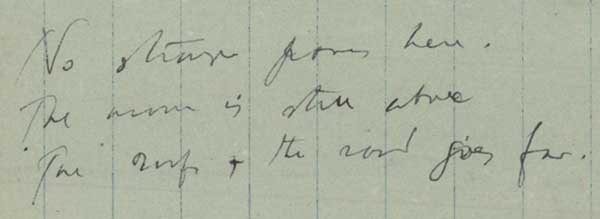 No strange powers here.
The moon is still above
The roofs + the road goes far.